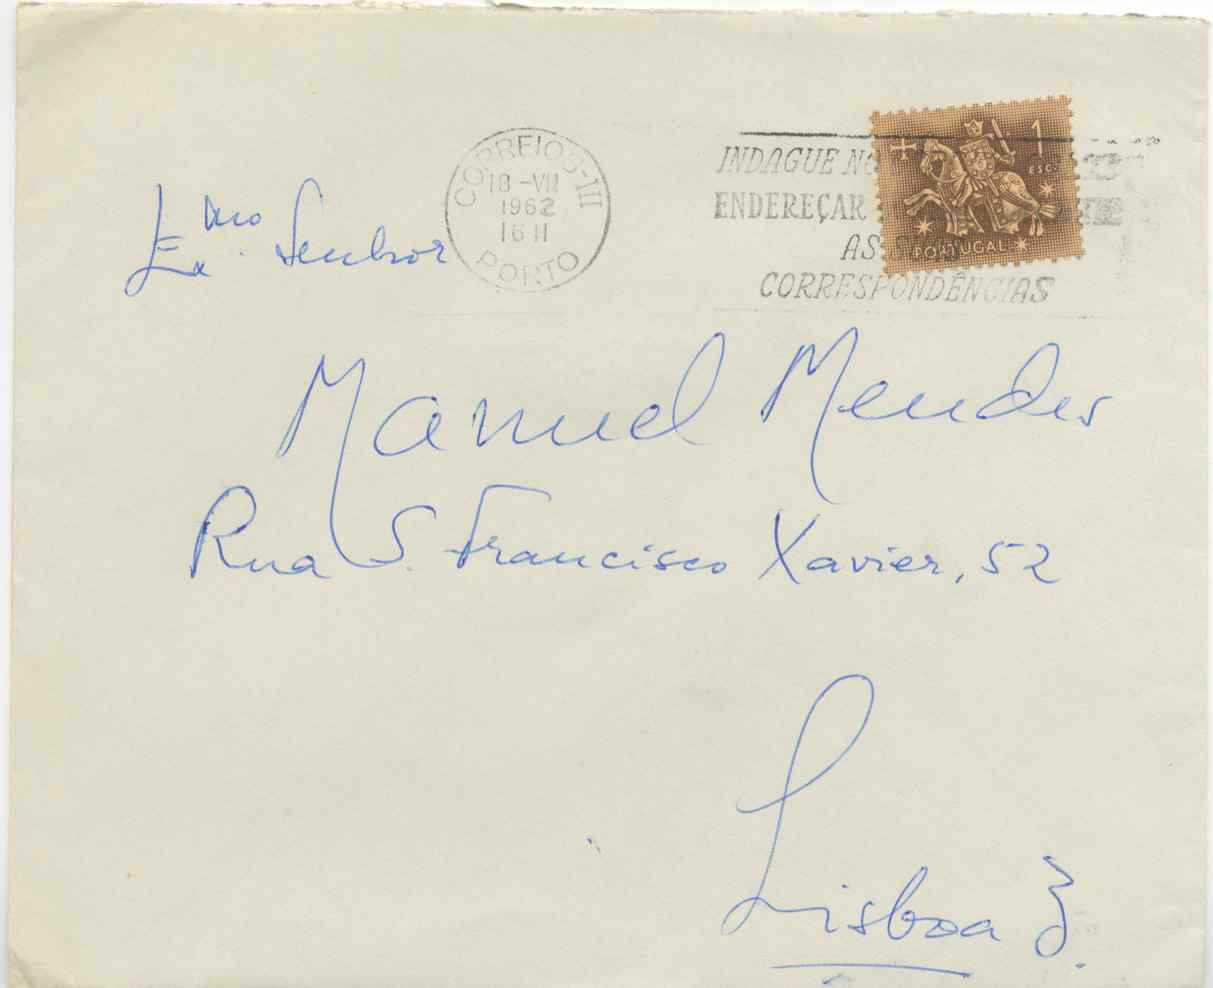 CORREIOS-III
18-VII
1962
16 H
PORTO
INDAGUE
ENDEREÇAR
AS
CORRESPONDÊNCIAS
1
ESC.
PORTUGAL
Exmo. Senhor
Manuel Mendes
Rua S. Francisco Xavier, 52
Lisboa 3.